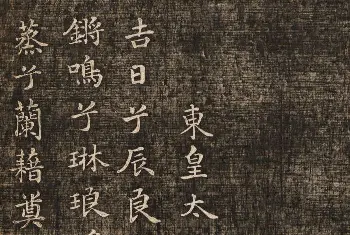 東皇太
吉日兮辰良
鏘鳴兮琳琅
蒸兮蘭藉奠